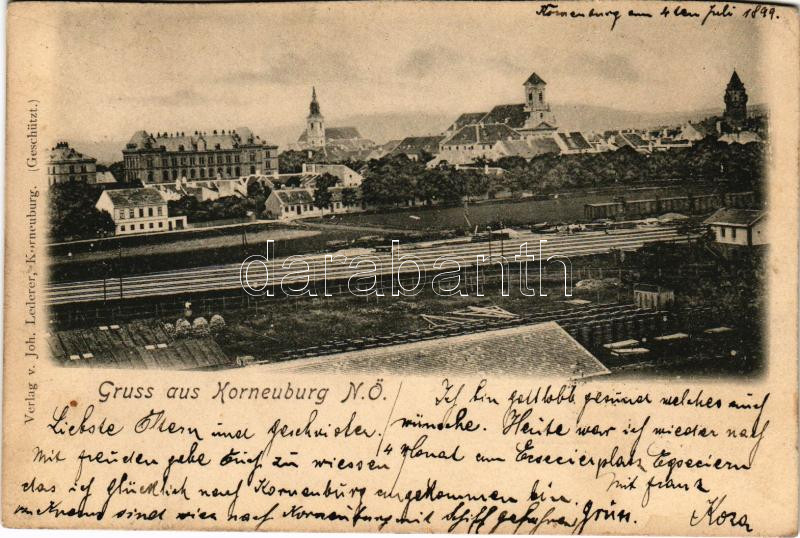 Korneuburg am 4ten Juli 1899.
Verlag v. Joh. Lederer, Korneuburg. (Geschützt.)
darabanth
Gruss aus Korneuburg N.Ö.
Liebste Eltern und Geschwister.
Mit freuden gebe Euch zu wiessen
das ich Glücklich nach Kornenburg angekommen bin.
sind wier nach Kornenburg mit Schiff gefahren,
Ich bin gottlobb gesund welches auch
wünsche. Heute war ich wieder nach
4 Monat am Ecsecierplatz Egseciern
Mit franz
Grüss.